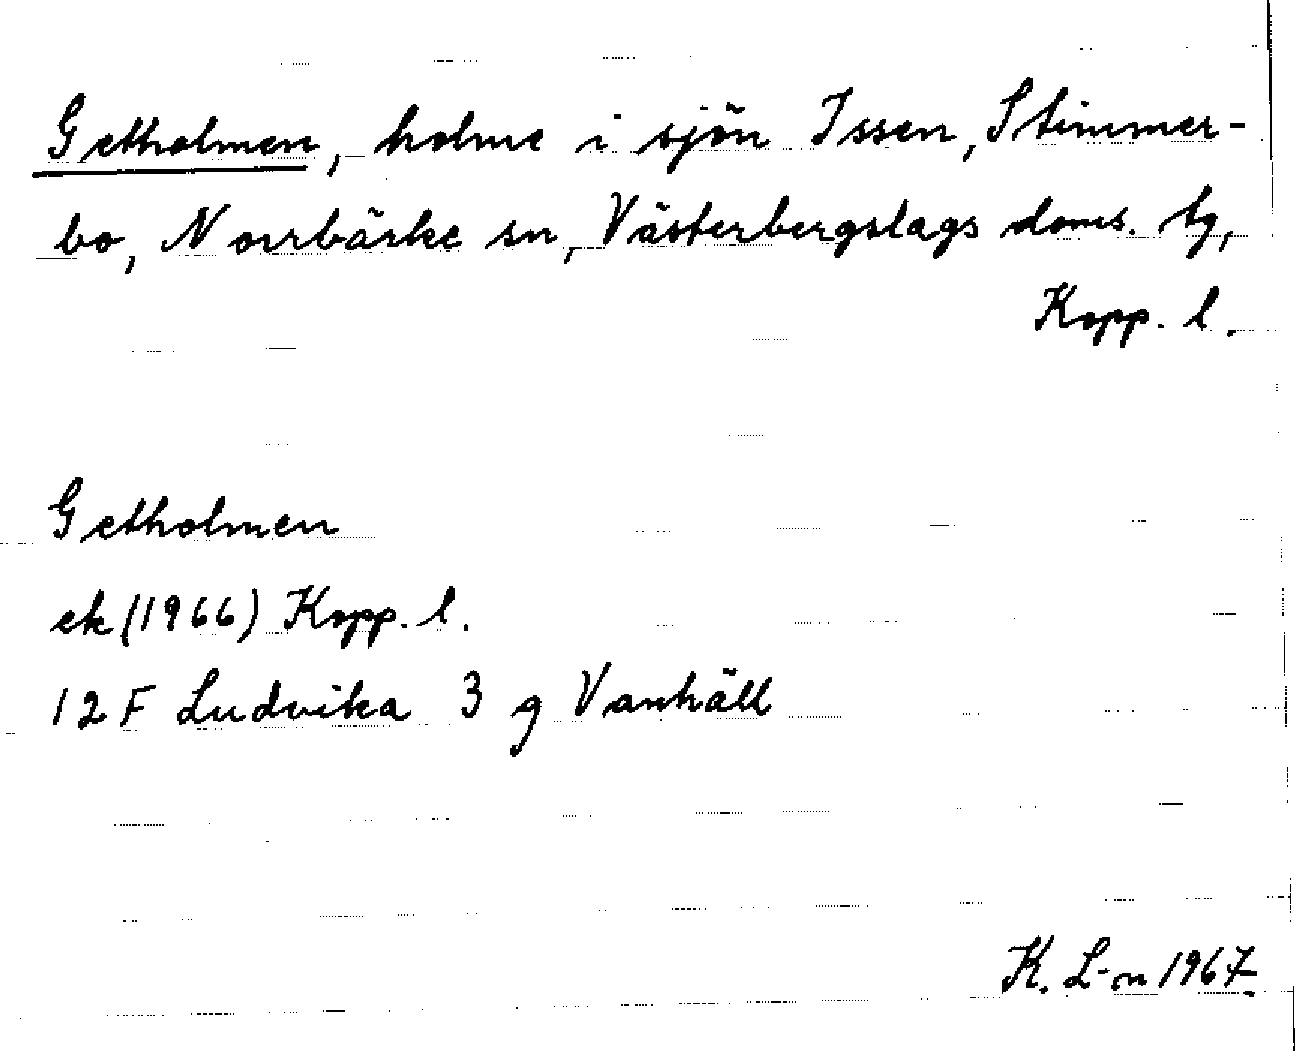 Getholmen, holme i sjön Issen, Stimmer-
bo, Norrbärke sn, Västerbergslags doms. tg,
Kopp. l.
Getholmen
ek (1966) Kopp. l.
12 F Ludvika 3 g Vanhäll
K. L-n 1967